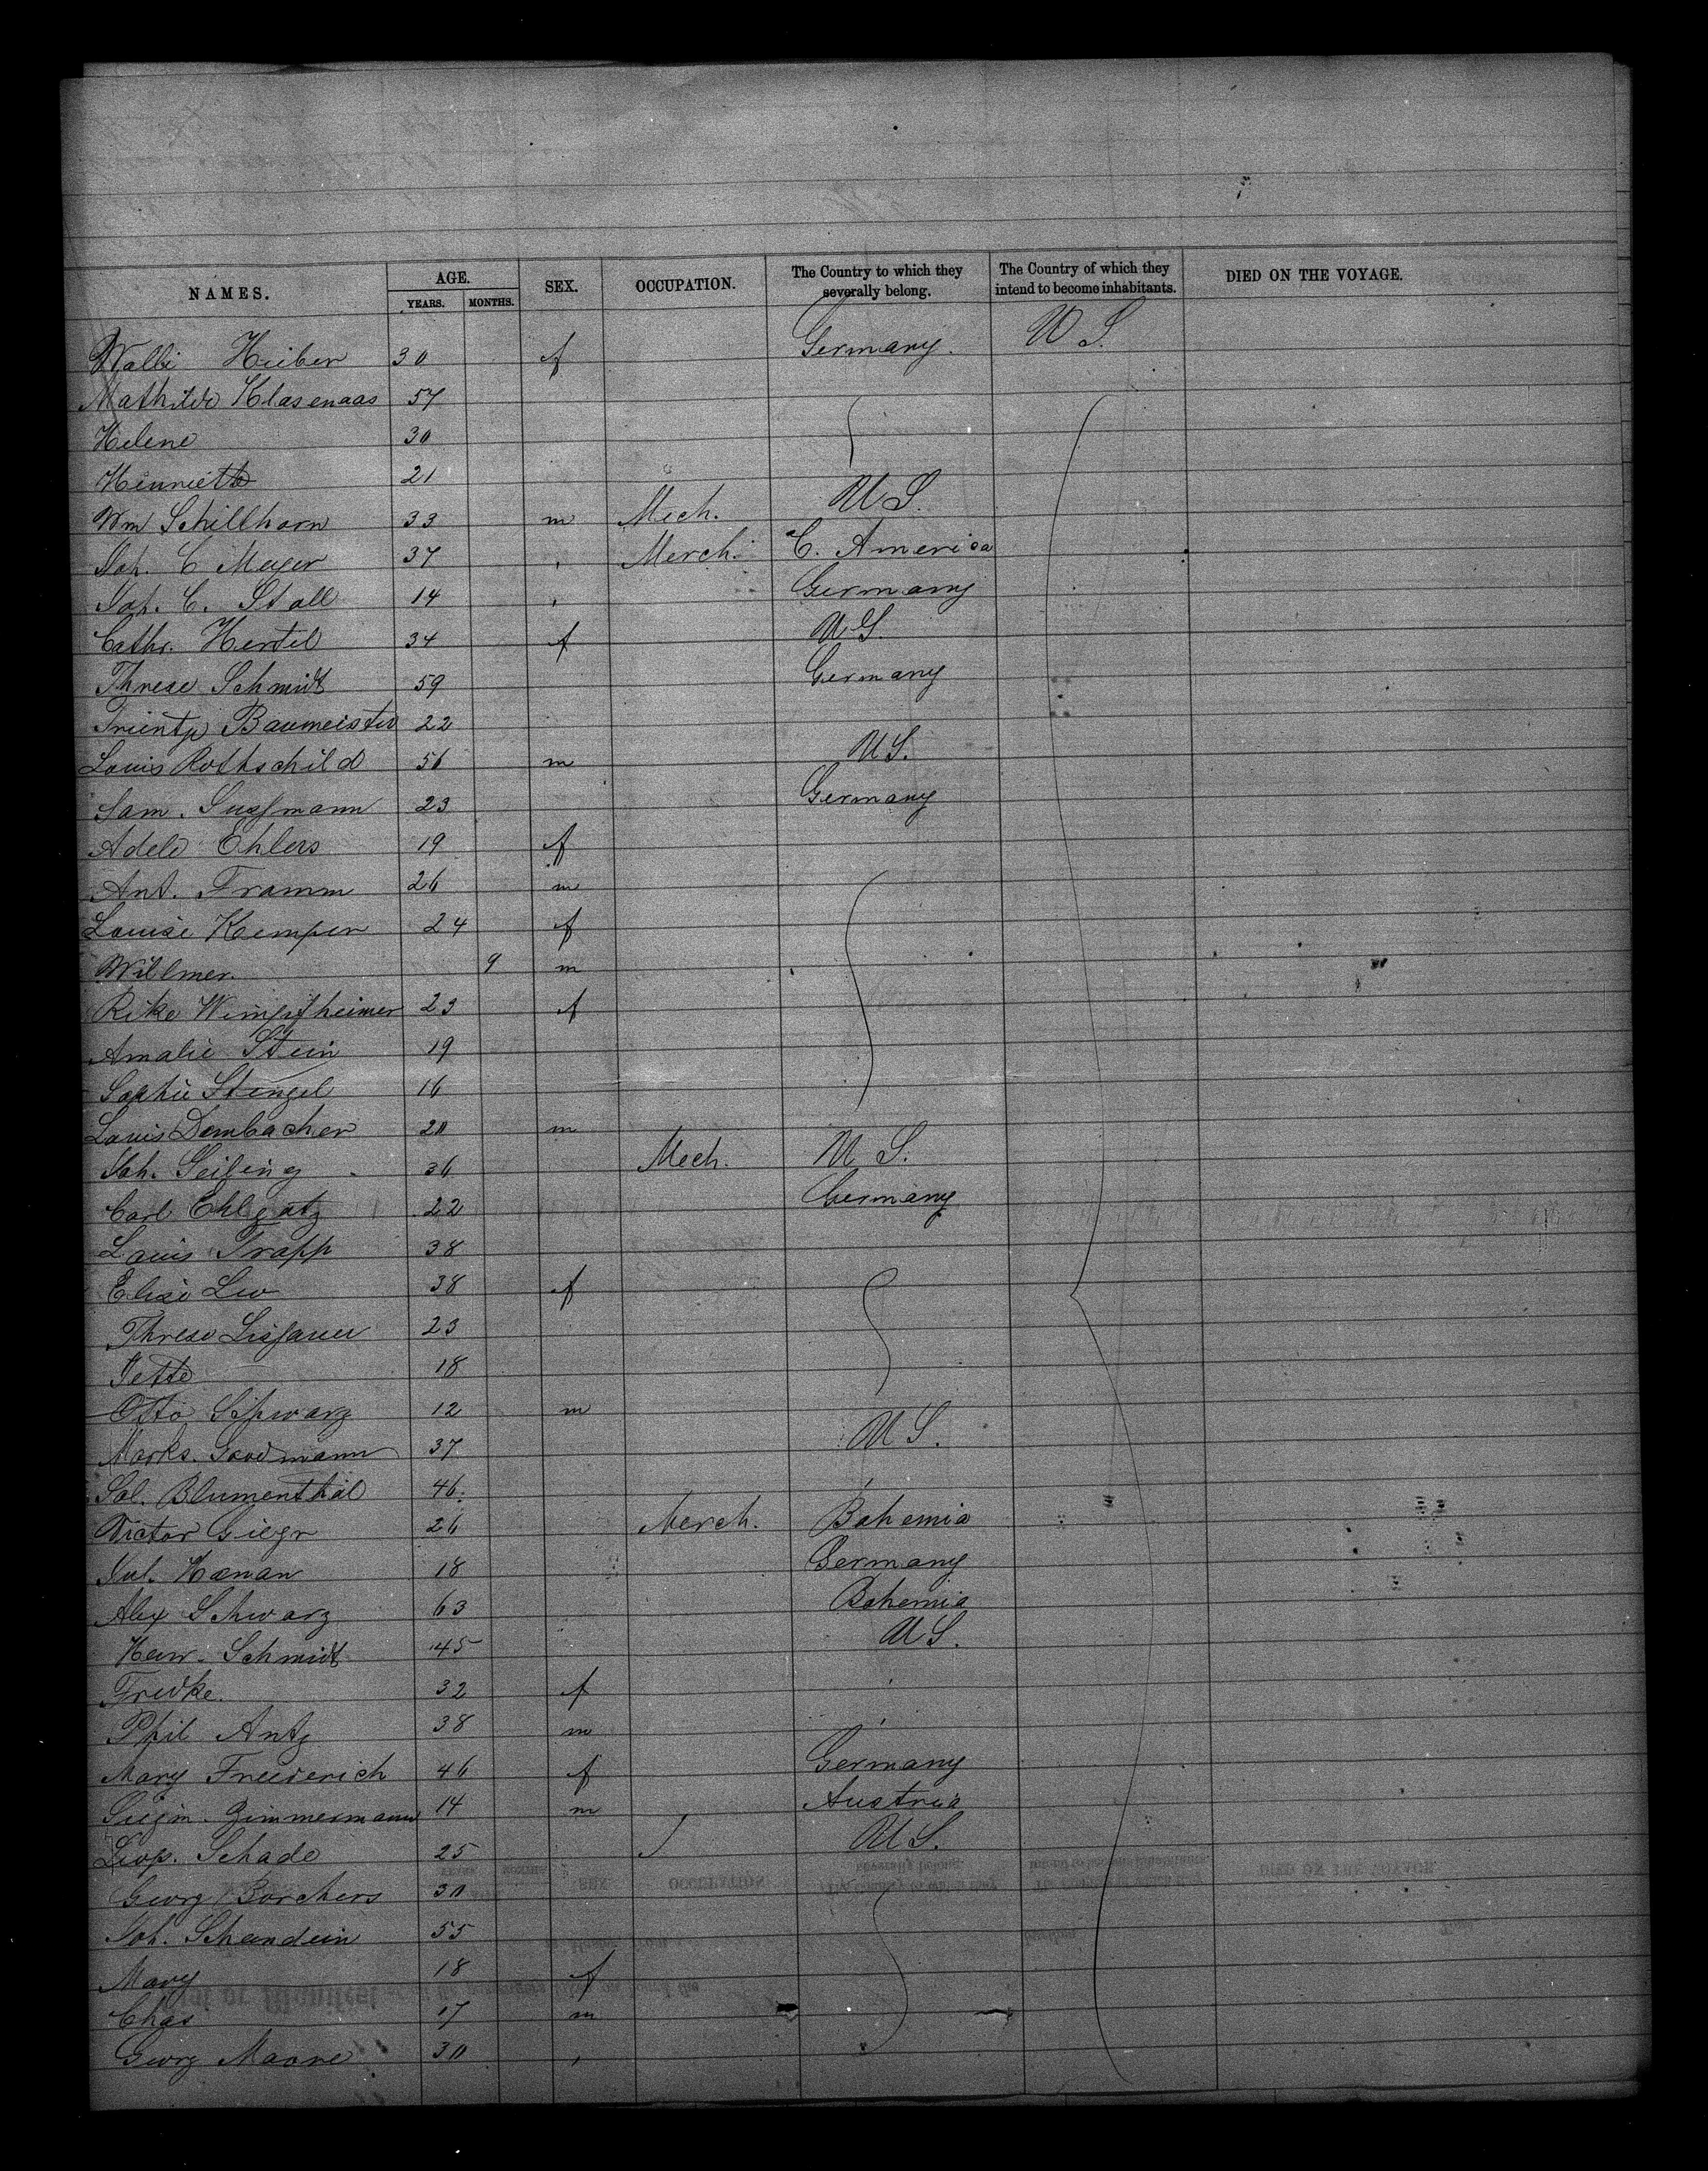 NAMES. AGE. SEX. OCCUPATION. The Country to which they severally belong. The Country of which they intend to become inhabitants. DIED ON THE VOYAGE.
YEARS. MONTHS.
Walli Hieber 30 f Germany. U S.
Mathilde Klasenaas 57
Helene 30
Henriette 21
Wm Schillhorn 33 m Mech. U S.
Joh. C Meyer 37 " Merch. C. America
Joh. C. Stoll 14 " Germany
Cathr. Hertel 34 f U S.
Threse Schmidt 59 Germany
Trientje Baumeister 22
Louis Rothschild 56 m U S.
Sam. Sussmann 23 Germany
Adele Ehlers 19 f
Ant. Framm 26 m
Louise Kemper 24 f
Willmer. 9 m
Rike Wimpfheimer 23 f
Amalie Stein 19
Sophie Stengel 16
Louis Dembacher 20 m
Joh. Seifing 36 Mech. U S.
Carl Ehlgatz 22 Germany
Louis Trapp 38
Elise Leo 38 f
Threse Lissauer 23
Jette 18
Otto Schwarz 12 m
Marks. Goodmann 37 U S.
Sal. Blumenthal 46. "
Victor Giegr 26 Merch. Bohemia
Jul. Haman 18 Germany
Alex Schwarz 63 Bohemia
Henr. Schmidt 45 U S.
Fredke. 32 f "
Phil Antz 38 m "
Mary Friederich 46 f Germany
Siegm. Zimmermann 14 m Austria
Leop. Schade 25 U S.
Georg Borchers 30
Joh. Schandein 55
Mary 18 f
Chas 17 m
Georg Moore 30 "